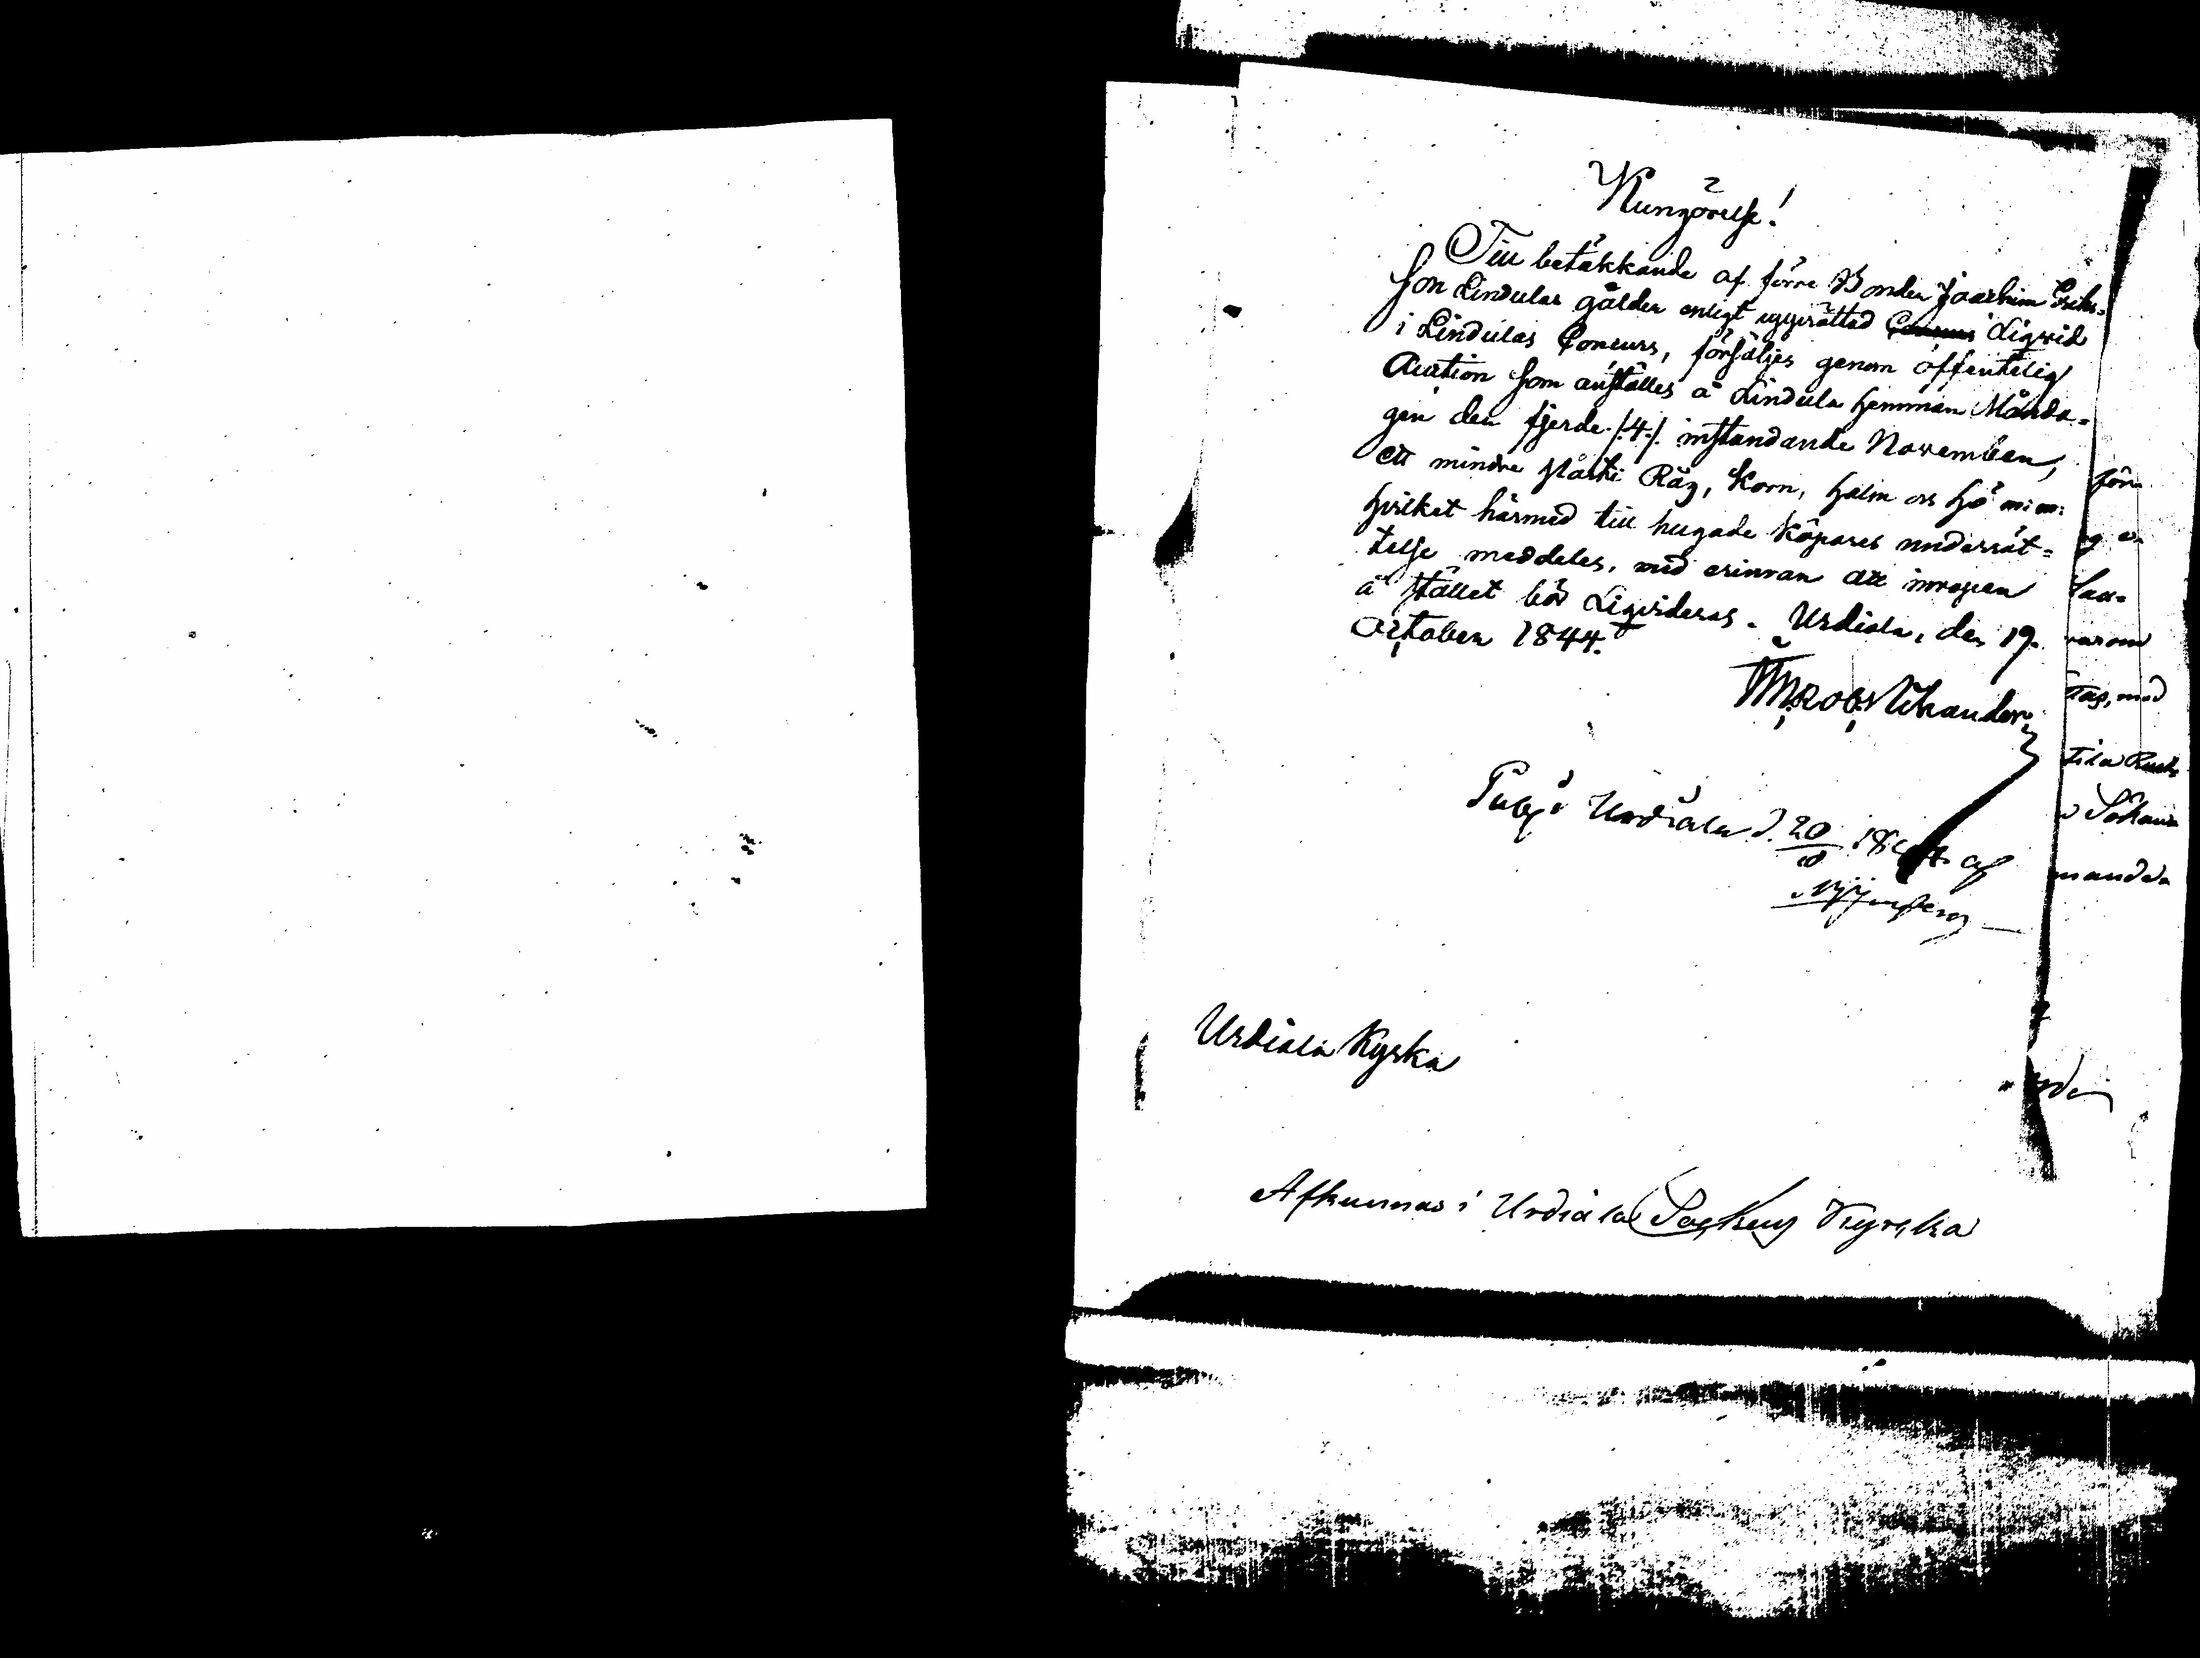 Kungörelse!
Till betäkkande af förre Bonden Joachim
son Lindulas gälder enligt upprättad Liqvid
i Lindulas Concurs, försäljes genom offentelig
Auction som anställes å Lindula hemman Månda-
gen den fjerde /:4:/ instandande November,
ett mindre parti Råg, Korn, halm och hö m: m:
hvilket härmed till hugade köpares underrät-
telse meddeles, med erinran att inropen
å stället bör Liqvideras. Urdiala, den 19.
October 1844.
Publ i Urdiala d. 20 1844 af
Urdiala Kyrka
Afkunnas i Urdiala Sockens Kyrka
för
varom
tas, med